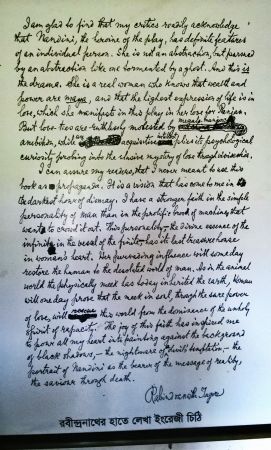 I am glad to find that my critics readily acknowledge
that Nandini, the heroine of the play, has definite features
of an individual person. She is not an abstraction, but pursued
by an abstraction like one tormented by a ghost. And this is
the drama. She is a real woman who knows that wealth and
power are maya, and that the highest expression of life is in
love, which she manifests in this play in her love for Ranjan.
But love-ties are ruthlessly molested by megalomaniac
ambition, while acquisitive plies its psychological
curiosity probing into the elusive mystery of love through vivisection.
I can assure my readers, that I never meant to use this
book as propaganda. It is a vision that has come to me in
darkest hour of dismay. I have a stronger faith in the simple
personality of man than in the prolific brood of machinery that
wants to crowd it out. This personality—the divine essence of the
infinite in the vessel of the finite—has its last treasure-house
in woman's heart. Her pervading influence will some day
restore the human to the desolated world of man. As in the animal
world the physically meek has today inherited the earth, woman
will one day prove that the meek in soul, through the sure power
of love, will rescue this world from the dominance of the unholy
spirit of rapacity. The joy of this faith has inspired me
to pour all my heart into painting against the background
of black shadows,—the nightmare of devil's temptation,—the
portrait of Nandini as the bearer of the message of reality,
the saviour through death.
Rabindranath Tagore
রবীন্দ্রনাথের হাতে লেখা ইংরেজী চিঠি